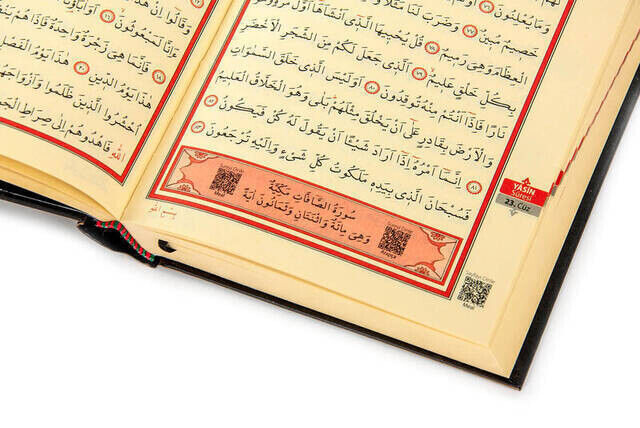 وَمَا يُعْلِنُونَ ﴿٧٦﴾
خَصِيمٌ مُبِينٌ ﴿٧٧﴾ وَضَرَبَ لَنَا مَثَلًا
الْعِظَامَ وَهِيَ رَمِيمٌ ﴿٧٨﴾ قُلْ يُحْيِيهَا الَّذِى اَنْشَاَهَا اَوَّلَ مَرَّةٍ وَهُوَ
بِكُلِّ خَلْقٍ عَلِيمٌ ﴿٧٩﴾ اَلَّذِى جَعَلَ لَكُمْ مِنَ الشَّجَرِ الْاَخْضَرِ
نَارًا فَاِذَا اَنْتُمْ مِنْهُ تُوقِدُونَ ﴿٨٠﴾ اَوَلَيْسَ الَّذِى خَلَقَ السَّمٰوَاتِ
وَالْاَرْضَ بِقَادِرٍ عَلٰٓى اَنْ يَخْلُقَ مِثْلَهُمْ بَلٰى وَهُوَ الْخَلَّاقُ الْعَلِيمُ ﴿٨١﴾
اِنَّمَٓا اَمْرُهُٓ اِذَٓا اَرَادَ شَيْـًٔا اَنْ يَقُولَ لَهُ كُنْ فَيَكُونُ ﴿٨٢﴾
فَسُبْحَانَ الَّذِى بِيَدِهٖ مَلَكُوتُ كُلِّ شَيْءٍ وَاِلَيْهِ تُرْجَعُونَ ﴿٨٣﴾
سُورَةُ الصَّافَّاتِ مَكِّيَّةٌ
وَهِىَ مِائَةٌ وَاثْنَتَانِ وَثَمَانُونَ اٰيَةً
Meal
YASİN
Suresi
23. Cüz
Sayfayı Dinle
Meal
وَقَالُٓوا اِنْ هٰذَٓا
اِنَّا لَمَبْعُوثُونَ ﴿١٦﴾ اَوَاٰبَٓاؤُ
فَاِنَّمَا هِىَ زَجْرَةٌ وَاحِدَةٌ فَاِذَا هُمْ
هٰذَا يَوْمُ الدِّينِ ﴿٢٠﴾ هٰذَا يَوْمُ الْفَصْلِ
اُحْشُرُوا الَّذِينَ ظَلَمُوا وَاَزْوَاجَهُمْ
فَاهْدُوهُمْ اِلٰى صِرَاطِ